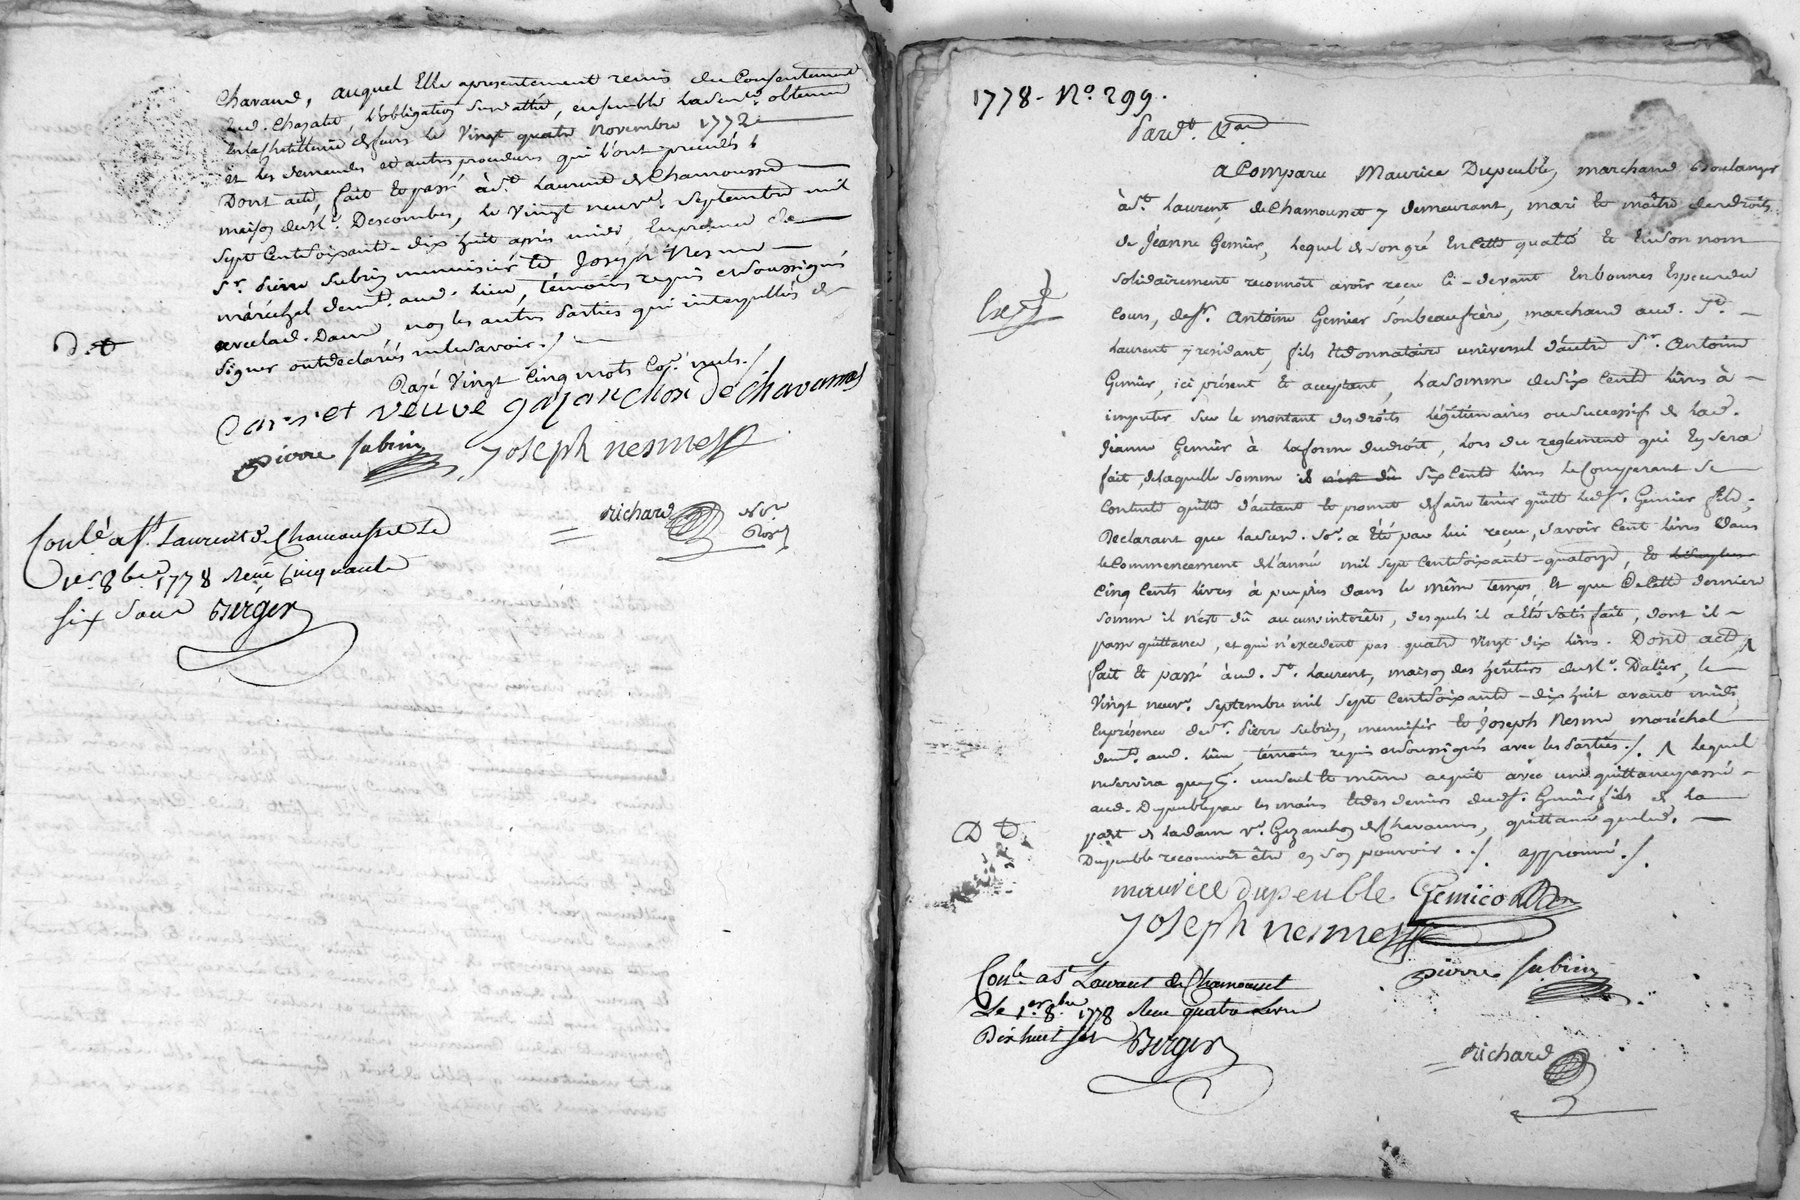 Chavand, auquel Elle apresentement remis du Consentement
dud. Chazalet l'obligation susdatté, ensemble la sentce. obtenue
le Vingt quatre Novembre 1772
et les demandes et autres procedures qui l'ont precedés
Dont acte, fait et passé à St. Laurent de Chamousset
maison du Sr. Descombes, le Vingt neuve. Septembre mil
sept Cent soixante-dix huit après midi, En presence de
Sr. Pierre Subrin menuisier et Joseph Nesme
maréchal demt. aud. Lieu, témoins requis et soussignés
avec lad. Dame non les autres Parties qui interpellés de
signer ont declarés ne le savoir ./.
D. D
Rayé Vingt Cinq mots Co. nuls ./
veuve gazanchon de chavannes
pierre subrin joseph nesme
richard Nore
Roy
Conlé a St. Laurent de Chamousset le
1er 8bre 1778 Reçu Cinquante
six sous Berger
1778 - No. 299.
Pardt. &a
a Comparu Maurice Dupeuble, marchand Boulanger
à St. Laurent de Chamousset y demeurant, mari et maître des droits
de Jeanne Gemier, lequel de son gré En cette qualité et En son nom
solidairement reconnoit avoir reçu ci-devant En bonnes Especes du
Cours, de Sr. Antoine Gemier son beaufrère, marchand aud. St.
Laurent y residant, fils Et donnataire universel d'autre Sr. Antoine
Gemier, ici présent et acceptant, la somme de six Cents Livres à
imputer sur le montant des droits légitimaires ou successifs de lad.
Jeanne Gemier à la forme du droit, lors du reglement qui En sera
fait, de laquelle somme de six Cents Livres le Comparant se
Contente quitte d'autant et promet de faire tenir quitte led. Sr. Gemier fils,
Declarant que lad. So. a Eté par lui reçue, savoir Cent Livres dans
le Commencement de l'année mil sept Cent soixante-quatorze, et
Cinq Cents Livres à peu près dans le même temps, Et que de cette derniere
somme il n'est dû aucuns interêts, desquels il a Eté satisfait, dont il
passe quittance, et qui n'excedent pas quatre Vingt dix Livres. Dont acte,
fait et passé à ud. St. Laurent, maison des héritiers du Sr. Dalier, le
Vingt neuve. Septembre mil Sept Cent soixante-dix huit avant midi,
En présence de Sr. Pierre Subrin, menuisier et Joseph Nesme maréchal
demt. aud. Lieu, témoins requis et soussignés avec les Parties ./. Lequel
ne servira que d'un seul et même acquit avec une quittance passé
aud. Dupeuble par les mains et des deniers dud. Sr. Gemier fils de la
part de la dame ve. Gazanchon de Chavannes, quittance que led.
Dupeuble reconnoit être en son pouvoir ./. approuvé ./.
D D
maurice dupeuble Gemier
joseph nesme
pierre subrin
Conle a St Laurent de Chamousset
Le 1er 8bre 1778 Reçu quatre Livres
Dix huit sols Berger
richard